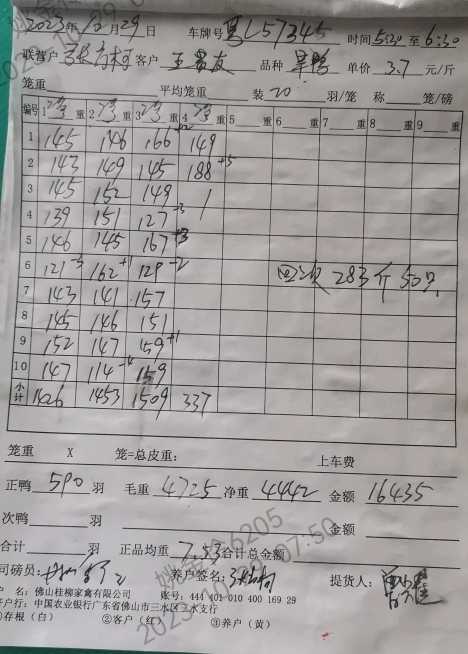 2023年10月29日 车牌号 粤L57345 时间 5:30 至 6:30
联营户 客户 王昌友 品种 单价 3.7 元/斤
笼重 平均笼重 装 20 羽/笼 称 笼/磅
编号 1 重 2 重 3 重 4 重 5 重 6 重 7 重 8 重 9 重
1 145 146 166 149
2 143 149 145 188 +5
3 145 152 149
4 139 151 127 -3
5 146 145 167 +3
6 121 -3 162 +1 129 -2 回次 283斤 50只
7 143 141 157
8 145 146 151
9 152 147 159 +1
10 147 114 -4 159
小计 1426 1453 1509 337
笼重 X 笼=总皮重: 上车费
正鸭 590 羽 毛重 4725 净重 4442 金额 16435
次鸭 羽 金额
合计 羽 正品均重 7.53 合计总金额
司磅员: 养户签名: 提货人:
户 名: 佛山桂柳家禽有限公司 账号: 444 101 010 400 169 29
开户行: 中国农业银行广东省佛山市三水区三水支行
①存根(白) ②客户(红) ③养户(黄)